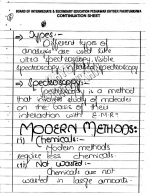 BOARD OF INTERMEDIATE & SECONDARY EDUCATION PESHAWAR KHYBER PAKHTUNKHWA
CONTINUATION SHEET
⇒ Types:-
Different types of
analysis are used like
ultra spectroscopy, visible
spectroscopy, infrared spectroscopy
⇒ Spectroscopy:-
Spectroscopy is a method
that involves study of molecules
on the basis of their
interaction with E.M.R.
MODERN METHODS:
(1) Chemicals:-
Modern methods
require less chemicals.
(2) Not Wasted:-
Chemicals are not
wasted in large amounts.